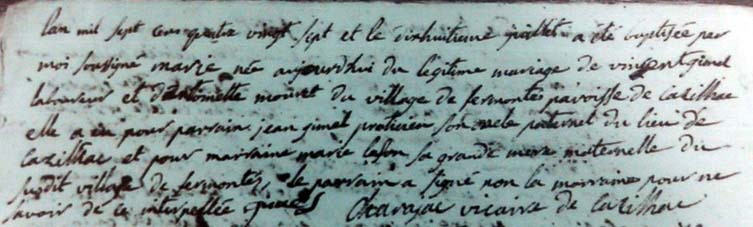 Lan mil sept cens quatre vingt sept et le dixhuitieme juillet a été baptisée par
moi soussigné marie née aujourdhui du légitime mariage de vincent gimel
laboureur et d'antoinette mouret du village de fermontes paroisse de cazilhac
elle a eu pour parrain jean gimel praticien son oncle paternel du lieu de
cazilhac et pour marraine marie lafon sa grande mere maternelle du
susdit village de fermontes, le parrain a signé non la marraine pour ne
savoir de ce interpellée gimel Charajac vicaire de Cazilhac